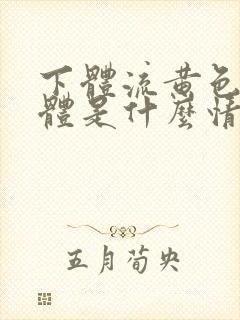 下體流黄色
體是什麼情
五月荀央